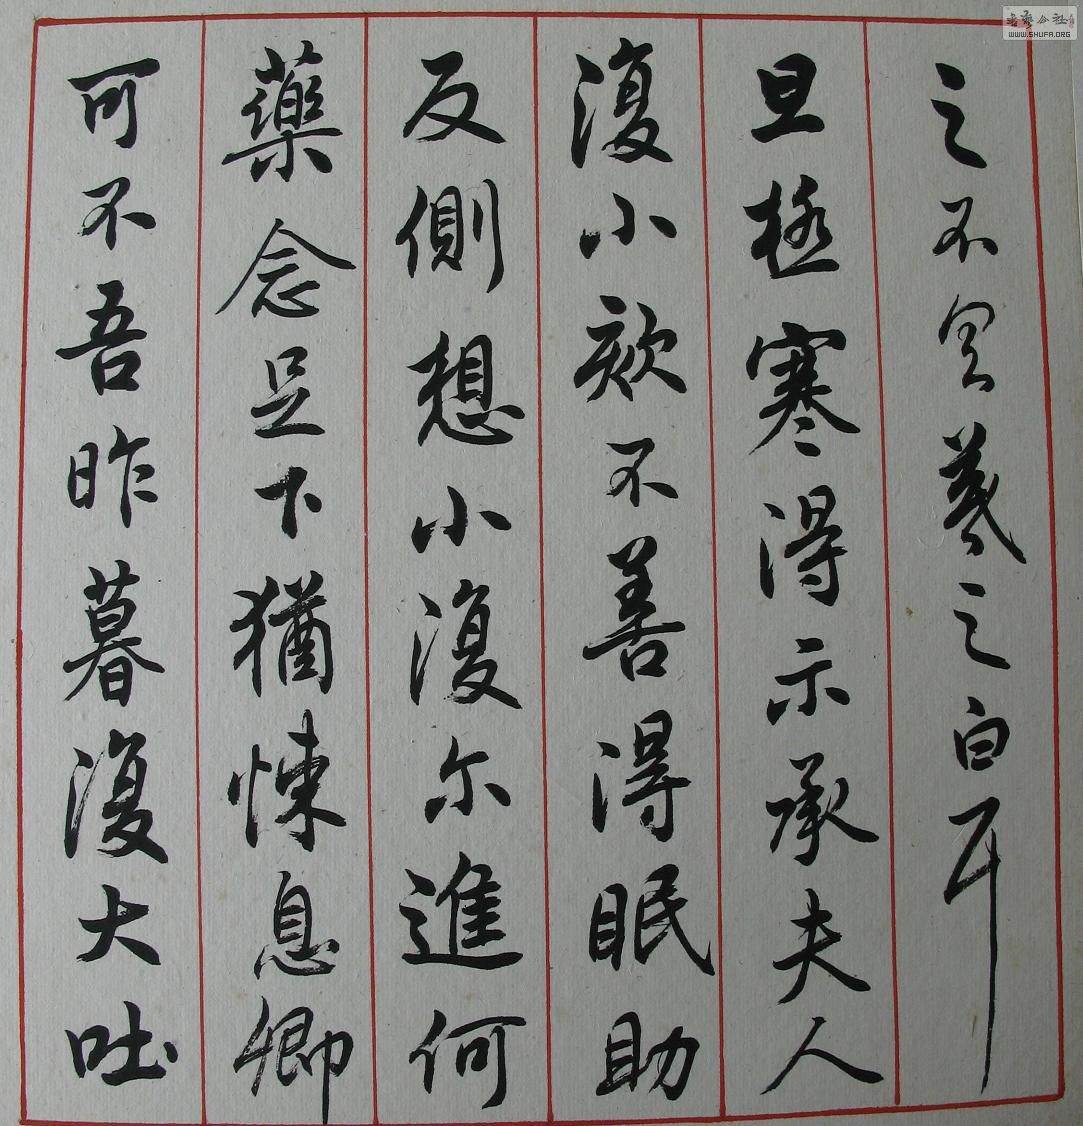 之不具羲之白耳
旦極寒得示承夫人
復小欬不善得眠助
反側想小復尔進何
藥念足下猶悚息卿
可不吾昨暮復大吐
書藝公社
WWW.SHUFA.ORG